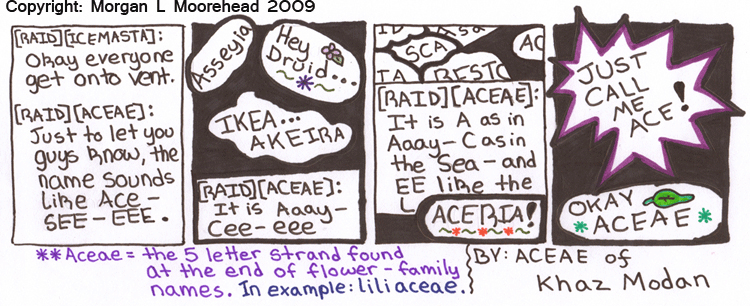 Copyright: Morgan L Moorehead 2009
[RAID][ICEMASTA]:
Okay everyone
get onto vent.
[RAID][ACEAE]:
Just to let you
guys know, the
name sounds
like Ace-
SEE-EEE.
Asseyia
Hey
Druid...
IKEA...
AKEIRA
[RAID][ACEAE]:
It is Aaay-
Cee-eee
SCA
Asa
AC
TA
RESTO
[RAID][ACEAE]:
It is A as in
Aaay-C as in
the Sea-and
EE like the
L
ACERIA!
JUST
CALL
ME
ACE!
OKAY
*ACEAE*
**Aceae = the 5 letter strand found
at the end of flower-family
names. In example: liliaceae.
BY: ACEAE of
Khaz Modan